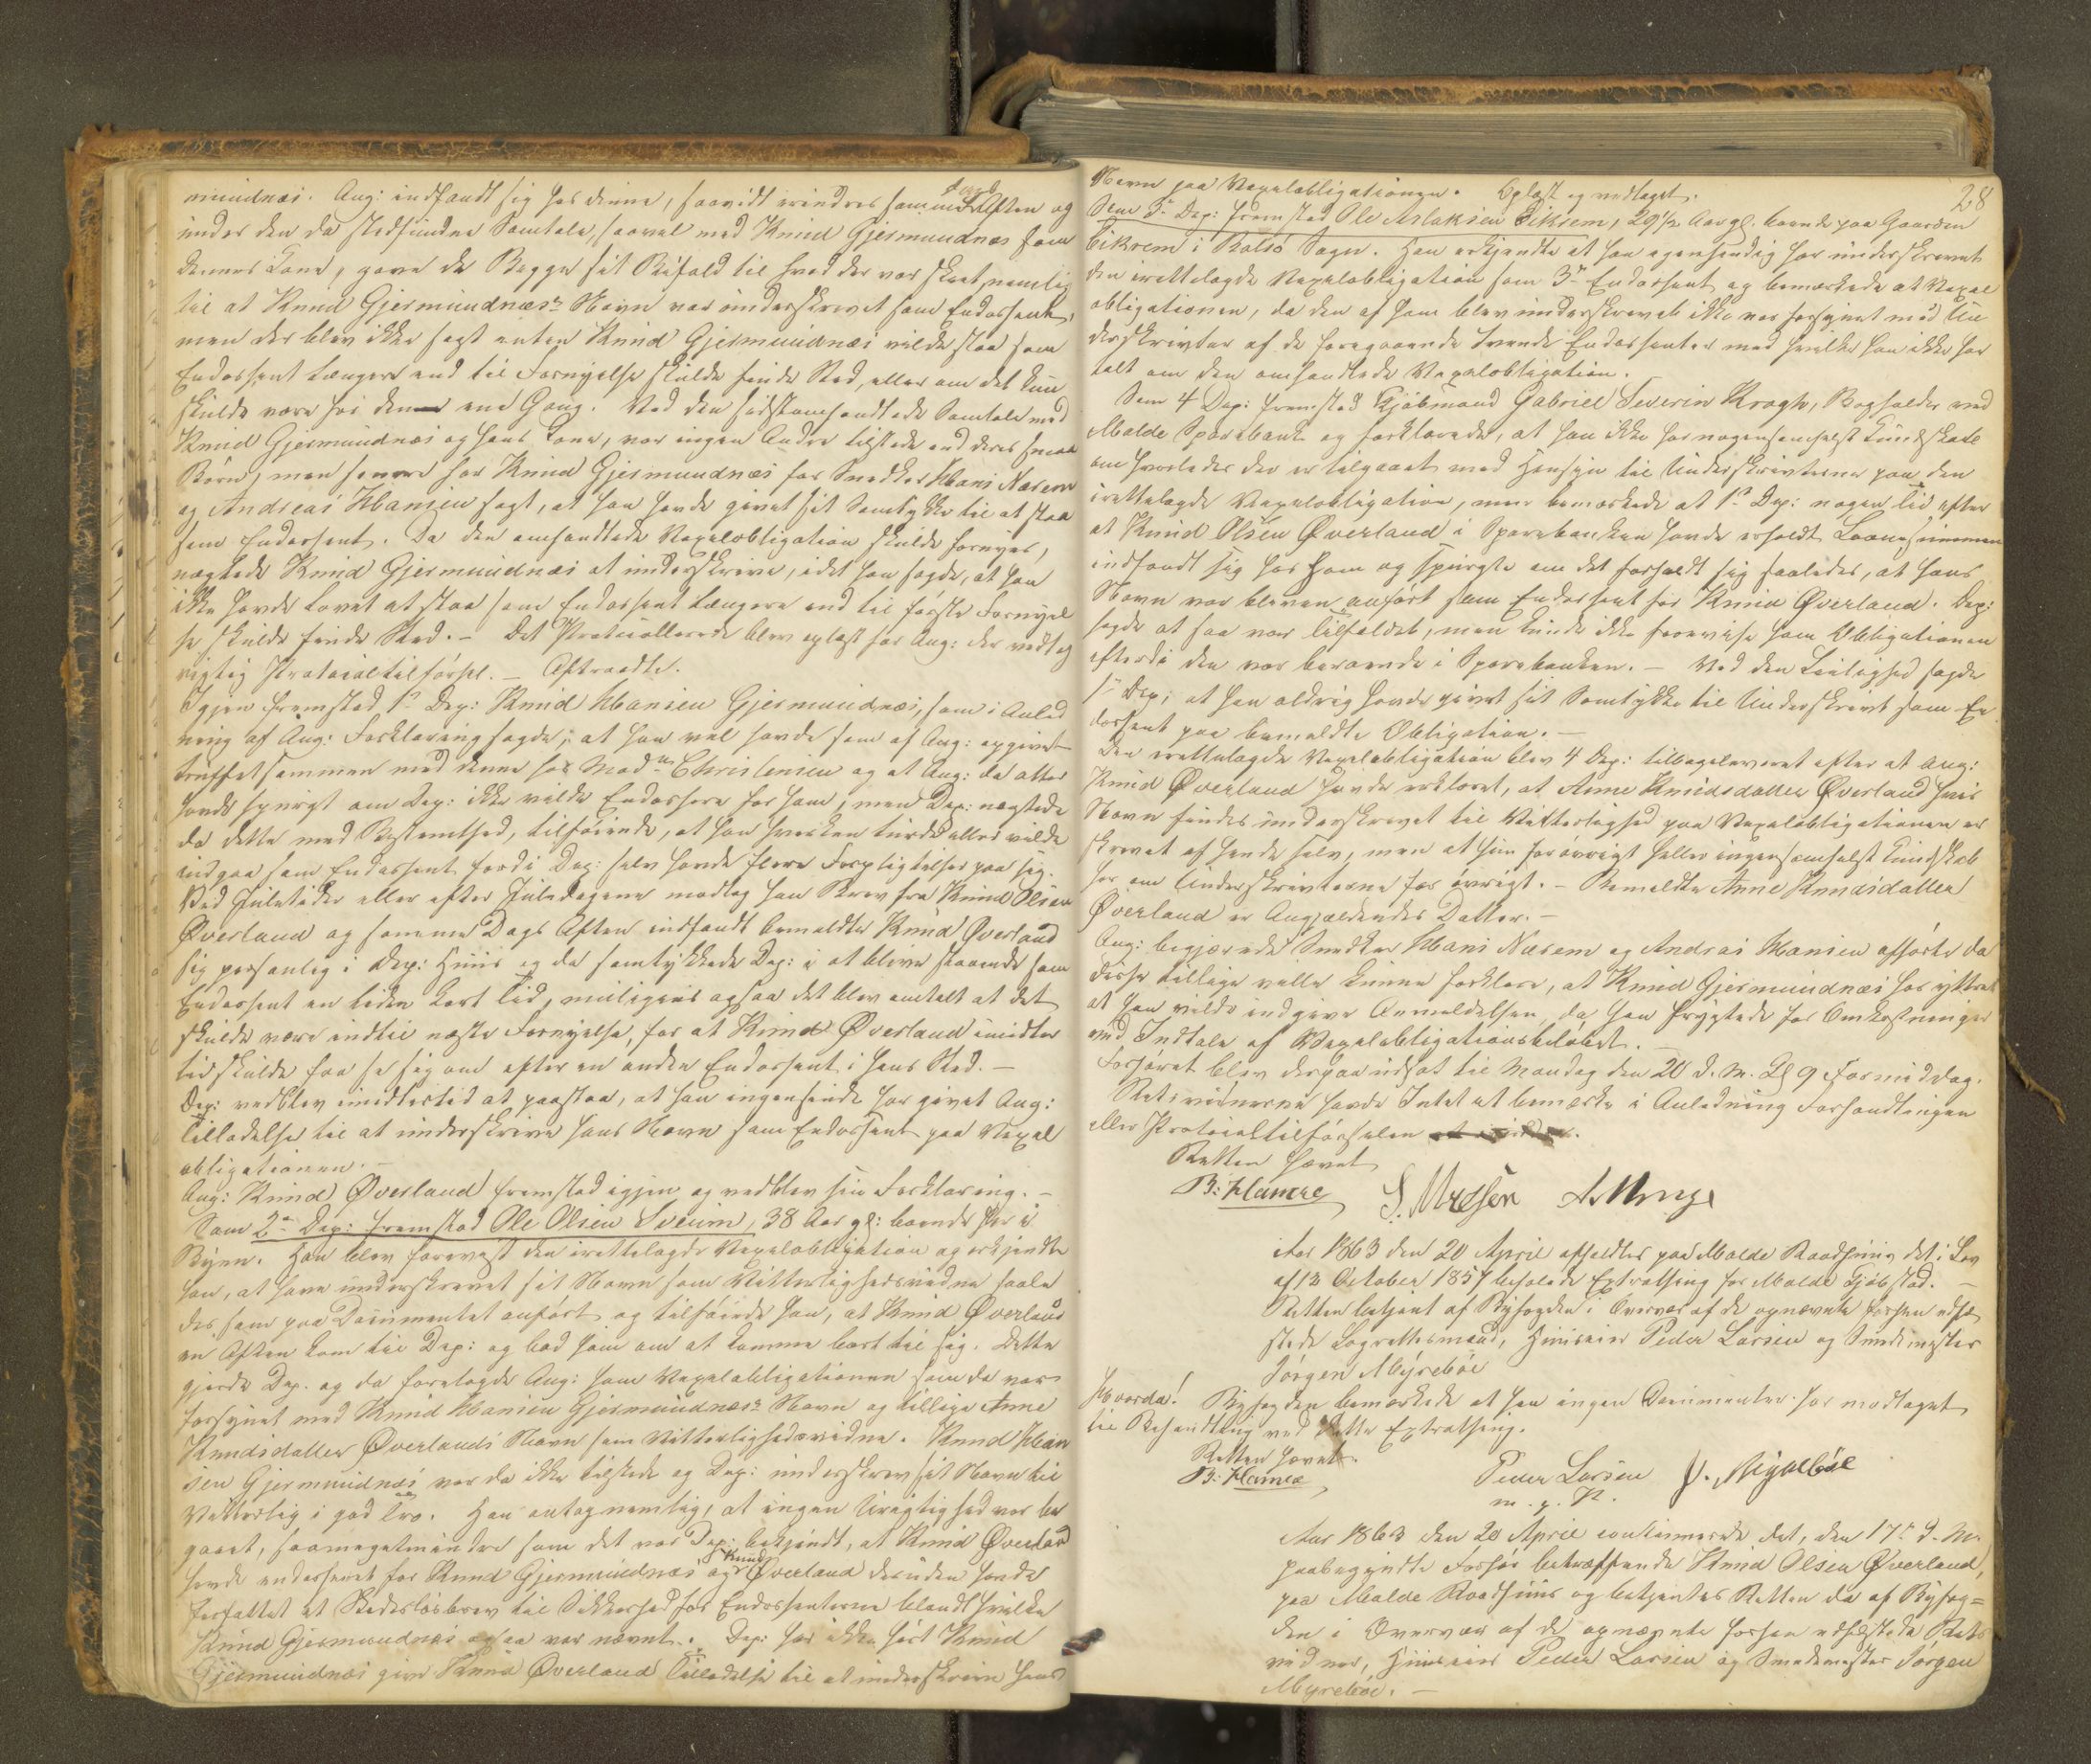 mundnæs. Ang: indfandt sig hos denne, saavidt erindres samme Dags Aften og
under den da stedfundne Samtale, saavel med Knud Gjermundnæs som
dennes Kone, gave de Begge sit Bifald til hvad der var skeet, nemlig
til at Knud Gjermundnæs's Navn var underskrevet som Endossent,
men der blev ikke sagt enten Knud Gjermundnæs vilde staa som
Endossent længere end til Fornyelse skulde finde Sted, eller om det kun
skulde være for denne ene Gang. Ved den sidstomhandlede Samtale med
Knud Gjermundnæs og hans Kone, var ingen Andre tilstede end deres smaa
Børn, men senere har Knud Gjermundnæs for Snedker Hans Næsem
og Andreas Hansen sagt, at han havde givet sit Samtykke til at staa
som Endossent. Da den omhandlede Vexelobligation skulde fornyes,
nægtede Knud Gjermundnæs at underskrive, idet han sagde, at han
ikke havde lovet at staa som Endossent længere end til første Fornyel
se skulde finde Sted. – Det Protocollerede blev oplæst for Ang: der vedtog
rigtig Protocoltilførsel. – Aftraadte.
Igjen fremstod 1ste Dep: Knud Hansen Gjermundnæs, som i Anled
ning af Ang: Forklaring sagde, at han vel havde som af Ang: opgivet
truffet sammen med denne hos Mad.m Christensen og at Ang: da atter
havde spurgt om Dep: ikke vilde Endossere for ham, men Dep: nægtede
da dette med Bestemthed, tilføiende, at han hverken turde eller vilde
indgaa som Endossent fordi Dep: selv havde flere Forpligtelser paa sig.
Ved Juletider eller efter Juledagene modtog han Brev fra Knud Olsen
Øverland og samme Dags Aften indfandt bemeldte Knud Øverland
sig personlig i Dep: Huus og da samtykkede Dep: i at blive staaende som
Endossent en liden kort Tid, muligens ogsaa det blev omtalt at det
skulde være indtil næste Fornyelse, for at Knud Øverland imidler
tid skulde faa se sig om efter en anden Endossent i hans Sted. –
Dep: vedblev imidlertid at paastaa, at han ingensinde har givet Ang:
Tilladelse til at underskrive hans Navn som Endossent paa Vexel
obligationen. –
Ang: Knud Øverland fremstod igjen og vedblev sin Forklaring. –
Som 2den Dep: fremstod Ole Olsen Sveum, 38 Aar gl: boende her i
Byen. Han blev forevist den irettelagde Vexelobligation og erkjendte
han, at have underskrevet sit Navn som Vitterlighedsvidne saale
des som paa Documentet anført og tilføiede han, at Knud Øverland
en Aften kom til Dep: og bad ham om at komme bort til sig. Dette
gjorde Dep. og da forelagde Ang: ham Vexelobligationen som da var
forsynet med Knud Hansen Gjermundnæs's Navn og tillige Anne
Knudsdatter Øverlands Navn som Vitterlighedsvidne. Knud Han
sen Gjermundnæs var da ikke tilstede og Dep: underskrev sit Navn til
Vitterlig i god Tro. Han antog nemlig, at ingen Urigtighed var be
gaaet, saameget mindre som det var Dep: bekjendt, at Knud Øverland
havde endosseret for Knud Gjermundnæs og Knud Øverland desuden havde
forfattet et Skadesløsbrev til Sikkerhed for Endossenterne blandt hvilke
Knud Gjermundnæs ogsaa var nævnt. Dep: har ikke hørt Knud
Gjermundnæs give Knud Øverland Tilladelse til at underskrive hans
28
Navn paa Vexelobligationen. Oplæst og vedtaget.
Som 3die Dep: fremstod Ole Aslaksen Eikrem, 29½ Aar gl. boende paa Gaarden
Eikrem i Bolsø Sogn. Han erkjendte at han egenhændig har underskrevet
den irettelagde Vexelobligation som 3die Endossent og bemærkede at Vexel
obligationen, da den af ham blev underskrevet ikke var forsynet med Un
derskrivter af de foregaaende tvende Endossenter med hvilke han ikke har
talt om den omhandlede Vexelobligation.
Som 4 Dep: fremstod Kjøbmand Gabriel Severin Krogh, Bogholder ved
Molde Sparebank og forklarede, at han ikke har nogensomhelst Kundskab
om hvorledes der er tilgaaet med Hensyn til Underskrivterne paa den
irettelagde Vexelobligation, men bemærkede at 1ste Dep: nogen Tid efter
at Knud Olsen Øverland i Sparebanken havde erholdt Laanesummen
indfandt sig hos ham og spurgte om det forholdt sig saaledes, at hans
Navn var bleven anført som Endossent for Knud Øverland. Dep:
sagde at saa var Tilfældet, men kunde ikke forevise ham Obligationen
efterdi den var beroende i Sparebanken. – Ved den Leilighed sagde
1ste Dep: at han aldrig havde givet sit Samtykke til Underskrivt som En
dossent paa bemeldte Obligation. –
Den irettelagde Vexelobligation blev 4 Dep: tilbageleveret efter at Ang:
Knud Øverland havde erklæret, at Anne Knudsdatter Øverland hvis
Navn findes underskrevet til Vitterlighed paa Vexelobligationen er
skrevet af hende selv, men at hun forøvrigt heller ingensomhelst Kundskab
har om Underskrivterne for øvrigt. – Bemeldte Anne Knudsdatter
Øverland er Angjældendes Datter. –
Ang: begjærede Snedker Hans Næsem og Andreas Hansen afhørte da
disse tillige ville kunne forklare, at Knud Gjermundnæs har yttret
at han vilde indgive Anmeldelsen, da han frygtede for Omkostninger
ved Indtale af Vexelobligationsbeløbet. –
Forhøret blev derpaa udsat til Mandag den 20 d. M. Kl 9 Formiddag.
Retsvidnerne havde Intet at bemærke i Anledning Forhandlingen
eller Protocoltilførselen
Retten hævet
B: Hamre
Aar 1863 den 20 April afholdtes paa Molde Raadhuus det i Lov
af 12 October 1857 befalede Extrathing for Molde Kjøbstad. –
Retten betjent af Byfogden i Overvær af de opnævnte forhen edfæ
stede Lagrettesmænd, Huuseier Peder Larsen og Smedmester
Jørgen Myrebøe
Hvorda!
Byfogden bemærkede at han ingen Documenter har modtaget
til Behandling ved dette Extrathing.
Retten hævet.
B: Hamre Peder Larsen
m. p. P.
Aar 1863 den 20 April continuerede det, den 17de d. M.
paabegyndte Forhør betræffende Knud Olsen Øverland,
paa Molde Raadhuus og betjentes Retten da af Byfog=
den i Overvær af de opnævnte forhen edfæstede Rets
vidner, Huuseier Peder Larsen og Smedemester Jørgen
Myrebøe. –